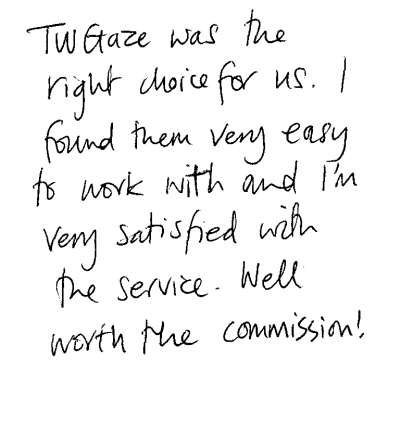 TW Gaze was the
right choice for us. I
found them very easy
to work with and I'm
very satisfied with
the service. Well
worth the commission!